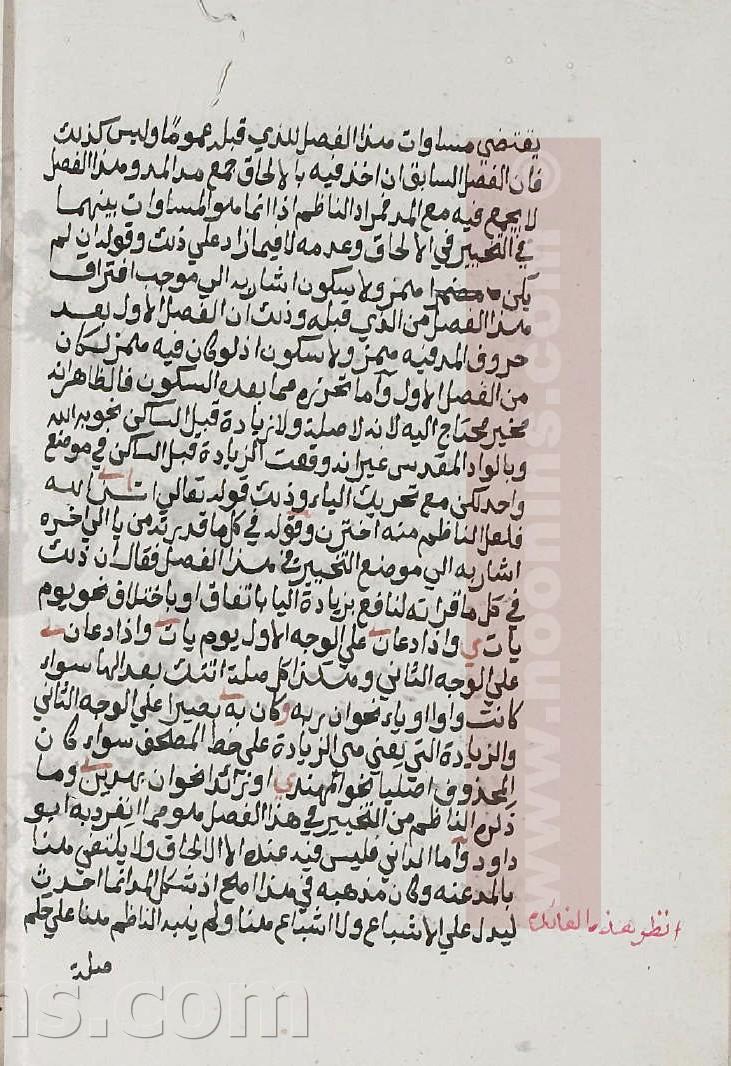 يقتضي مساوات هذا الفصل للذي قبله عموما وليس كذلك
فان الفصل السابق ان اخذ فيه بالالحاق جمع مد المد وهذا الفصل
لا يجمع فيه مع المد فمراد الناظم اذا انما هو المساوات بينهما
في التخيير في الالحاق وعدمه لا فيما زاد علي ذلك وقوله ان لم
يكن همز ولا سكون اشار به الي موجب افتراق
هذا الفصل من الذي قبله وذلك ان الفصل الاول بعد
حروف المد فيه همز ولا سكون اذ لو كان فيه همز لكان
من الفصل الاول وأما تحرزه مما بعده السكون فالظاهر انه
غير محتاج اليه لانه لا صلة ولا زيادة قبل الساكن نحو به الله
وبالواد المقدس غير انه وقعت الزيادة قبل الساكن في موضع
واحد لكن مع تحريك الياء وذلك قوله تعالي اتـٰن الله
فلعل الناظم منه احترز وقوله في كل ما قد يزته من يا الي اخره
اشار به الي موضع التخيير في هذا الفصل فقال ان ذلك
في كل ما قراته لنافع بزيادة اليا باتفاق او باختلاف نحو يوم
يات ي واذا دعان علي الوجه الاول يوم يات واذا دعان
علي الوجه الثاني وهكذا كل صلة اتتك بعد الها سواء
كانت واوا او ياء نحو ان ربه و كان به بصيرا علي الوجه الثاني
والزيادة التي يعني هي الزيادة علي خط المصحف سواء كان
المحذوف اصليا نحو المهتدي او زائدا نحو ان يهدين وما
ذكره الناظم من التخيير في هذا الفصل هو مما انفرد به ابو
داود وأما الداني فليس فيه عنده الا الالحاق ولا يكتفي هنا
بالمد عنه وكان مذهبه في هذا اصلح اذ شكل المد انما احدث
ليدل علي الاشباع ولا اشباع هنا ولم ينبه الناظم هنا علي حكم
صلة
انظر هذه الفائدة
www.noonins.com ©
ns.com